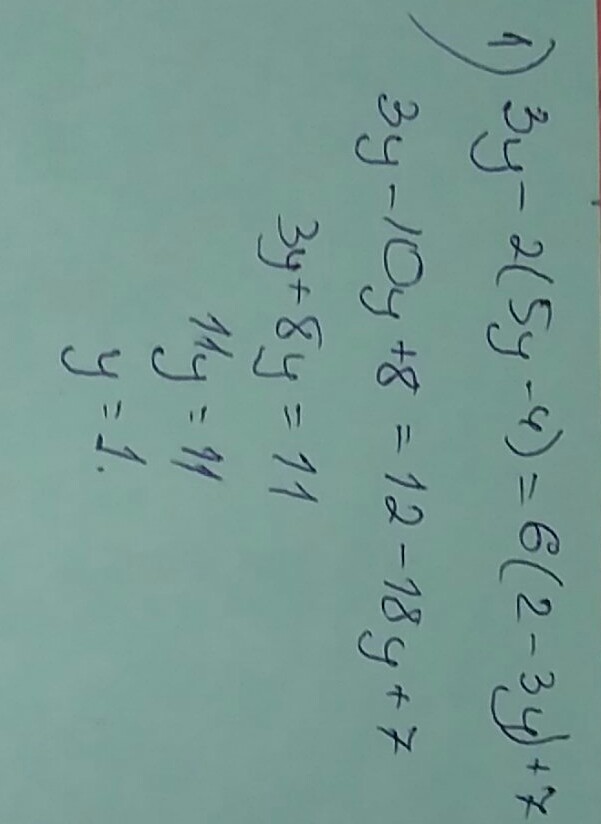 1) 3y - 2(5y - 4) = 6(2 - 3y) + 7
3y - 10y + 8 = 12 - 18y + 7
3y + 8y = 11
11y = 11
y = 1.